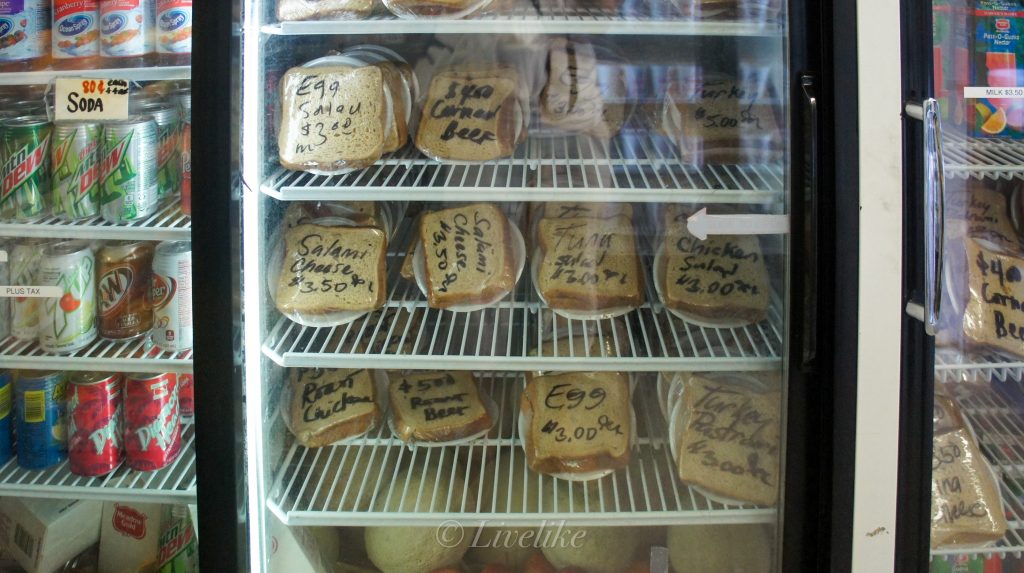 Ocean Spray
Cranberry
Ocean Spray
80¢
SODA
Mtn
DEW
A&W
PLUS TAX
Meadow
Gold
Egg
Salad
$3.00
$4.00
Corned
Beef
Turkey
$5.00
Salami
Cheese
$3.50
Salami
Cheese
$3.50
Tuna
salad
$3.00
Chicken
Salad
$3.00
Roast
Chicken
$5.00
Roast
Beef
Egg
$3.00
Turkey
Pastrami
$3.00
Pass-O-Guava
Nectar
MILK $3.50
Turkey
Corned
Beef
© Livelike